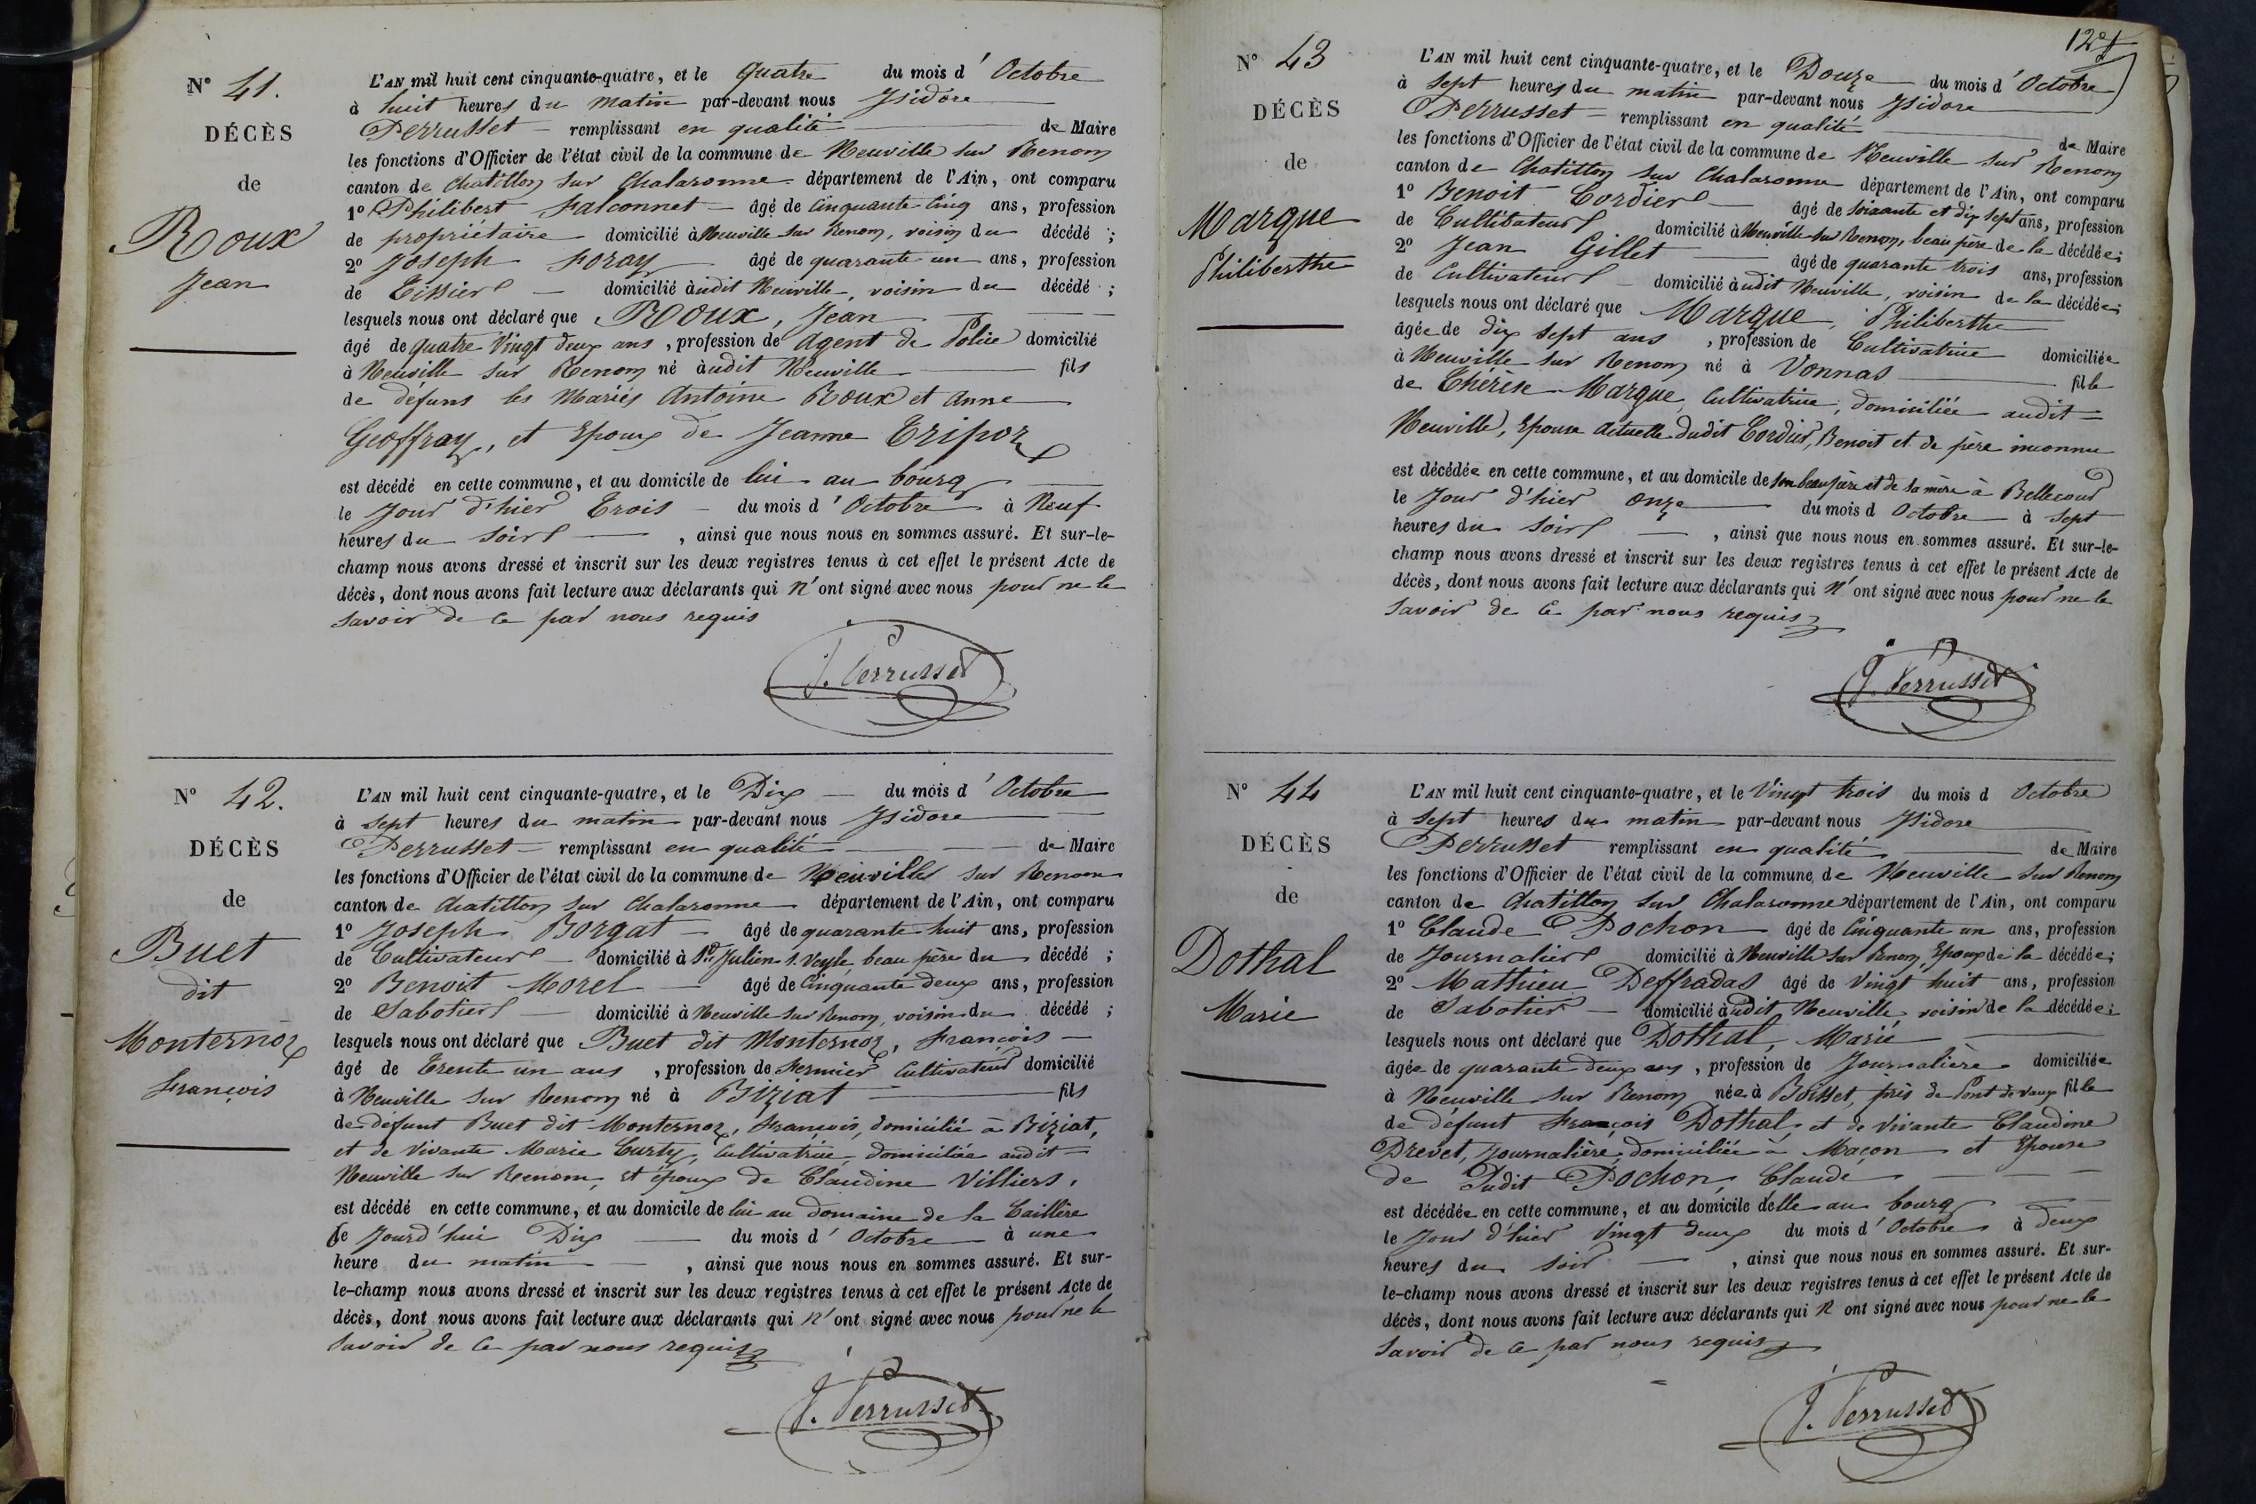 N° 41.
DÉCÈS
de
Roux
Jean
L'AN mil huit cent cinquante-quatre, et le quatre du mois d'Octobre
à huit heures du matin par-devant nous Isidore
Perrusset remplissant en qualité de Maire
les fonctions d'Officier de l'état civil de la commune de Neuville sur Renom
canton de Chatillon sur Chalaronne département de l'Ain, ont comparu
1° Philibert Falconnet âgé de Cinquante Cinq ans, profession
de propriétaire domicilié à Neuville sur Renom, voisin du décédé ;
2° Joseph Foray âgé de quarante un ans, profession
de Tissier domicilié àudit Neuville, voisin du décédé ;
lesquels nous ont déclaré que Roux, Jean
âgé de quatre Vingt deux ans, profession de agent de Police domicilié
à Neuville sur Renom né àudit Neuville fils
de défuns les Mariés Antoine Roux et Anne
Geoffray, et Epoux de Jeanne Tripoz
est décédé en cette commune, et au domicile de lui au bourg
le Jour d'hier Trois du mois d'Octobre à Neuf
heures du soir, ainsi que nous nous en sommes assuré. Et sur-le-
champ nous avons dressé et inscrit sur les deux registres tenus à cet effet le présent Acte de
décès, dont nous avons fait lecture aux déclarants qui n'ont signé avec nous pour ne le
savoir de ce par nous requis
J. Perrusset
N° 42.
DÉCÈS
de
Buet
dit
Monternoz
François
L'AN mil huit cent cinquante-quatre, et le Dix du mois d'Octobre
à sept heures du matin par-devant nous Isidore
Perrusset remplissant en qualité de Maire
les fonctions d'Officier de l'état civil de la commune de Neuville sur Renom
canton de Chatillon sur Chalaronne département de l'Ain, ont comparu
1° Joseph Borgat âgé de quarante huit ans, profession
de Cultivateur domicilié à St Julien s. Veyle, beau père du décédé ;
2° Benoit Morel âgé de Cinquante deux ans, profession
de Sabotier domicilié à Neuville sur Renom, voisin du décédé ;
lesquels nous ont déclaré que Buet dit Monternoz, François
âgé de Trente un ans, profession de Fermier Cultivateur domicilié
à Neuville sur Renom né à Biziat fils
de défunt Buet dit Monternoz, François, domicilié à Biziat,
et de Vivante Marie Curty, Cultivatrice, domiciliée audit
Neuville sur Renom, et époux de Claudine Villiers,
est décédé en cette commune, et au domicile de lui au domaine de la Taillère
le Jourd'hui Dix du mois d'Octobre à une
heure du matin, ainsi que nous nous en sommes assuré. Et sur-
le-champ nous avons dressé et inscrit sur les deux registres tenus à cet effet le présent Acte de
décès, dont nous avons fait lecture aux déclarants qui n'ont signé avec nous pour ne le
savoir de ce par nous requis
J. Perrusset
N° 43
DÉCÈS
de
Marque
Philiberthe
L'AN mil huit cent cinquante-quatre, et le Douze du mois d'Octobre
à sept heures du matin par-devant nous Isidore
Perrusset remplissant en qualité de Maire
les fonctions d'Officier de l'état civil de la commune de Neuville sur Renom
canton de Chatillon sur Chalaronne département de l'Ain, ont comparu
1° Benoit Cordier âgé de Soixante et dix sept ans, profession
de Cultivateur domicilié à Neuville sur Renom, beau père de la décédée ;
2° Jean Gillet âgé de quarante trois ans, profession
de Cultivateur domicilié àudit Neuville, voisin de la décédée ;
lesquels nous ont déclaré que Marque, Philiberthe
âgée de dix sept ans, profession de Cultivatrice domiciliée
à Neuville sur Renom né à Vonnas fille
de Thérèse Marque, Cultivatrice, domiciliée audit
Neuville, Epouse actuelle dudit Cordier, Benoit et de père inconnu
est décédée en cette commune, et au domicile de son beau père et de sa mère à Bellecour
le Jour d'hier onze du mois d Octobre à sept
heures du soir, ainsi que nous nous en sommes assuré. Et sur-le-
champ nous avons dressé et inscrit sur les deux registres tenus à cet effet le présent Acte de
décès, dont nous avons fait lecture aux déclarants qui n'ont signé avec nous pour ne le
savoir de ce par nous requis
J. Perrusset
N° 44
DÉCÈS
de
Dothal
Marie
L'AN mil huit cent cinquante-quatre, et le Vingt trois du mois d Octobre
à sept heures du matin par-devant nous Isidore
Perrusset remplissant en qualité de Maire
les fonctions d'Officier de l'état civil de la commune de Neuville sur Renom
canton de Chatillon sur Chalaronne département de l'Ain, ont comparu
1° Claude Pochon âgé de Cinquante un ans, profession
de Journalier domicilié à Neuville sur Renom, Epoux de la décédée ;
2° Mathieu Deffradas âgé de Vingt huit ans, profession
de Sabotier domicilié àudit Neuville voisin de la décédée ;
lesquels nous ont déclaré que Dothal, Marie
âgée de quarante deux ans, profession de Journalière domiciliée
à Neuville sur Renom née à Boisset, près de Pont de vaux fille
de défunt François Dothal, et de Vivante Claudine
Drevet, Journalière, domiciliée à Macon et Epouse
de Sudit Pochon, Claude
est décédée en cette commune, et au domicile d'elle au bourg
le Jour d'hier Vingt deux du mois d'Octobre à deux
heures du soir, ainsi que nous nous en sommes assuré. Et sur-
le-champ nous avons dressé et inscrit sur les deux registres tenus à cet effet le présent Acte de
décès, dont nous avons fait lecture aux déclarants qui n ont signé avec nous pour ne le
savoir de ce par nous requis
J. Perrusset